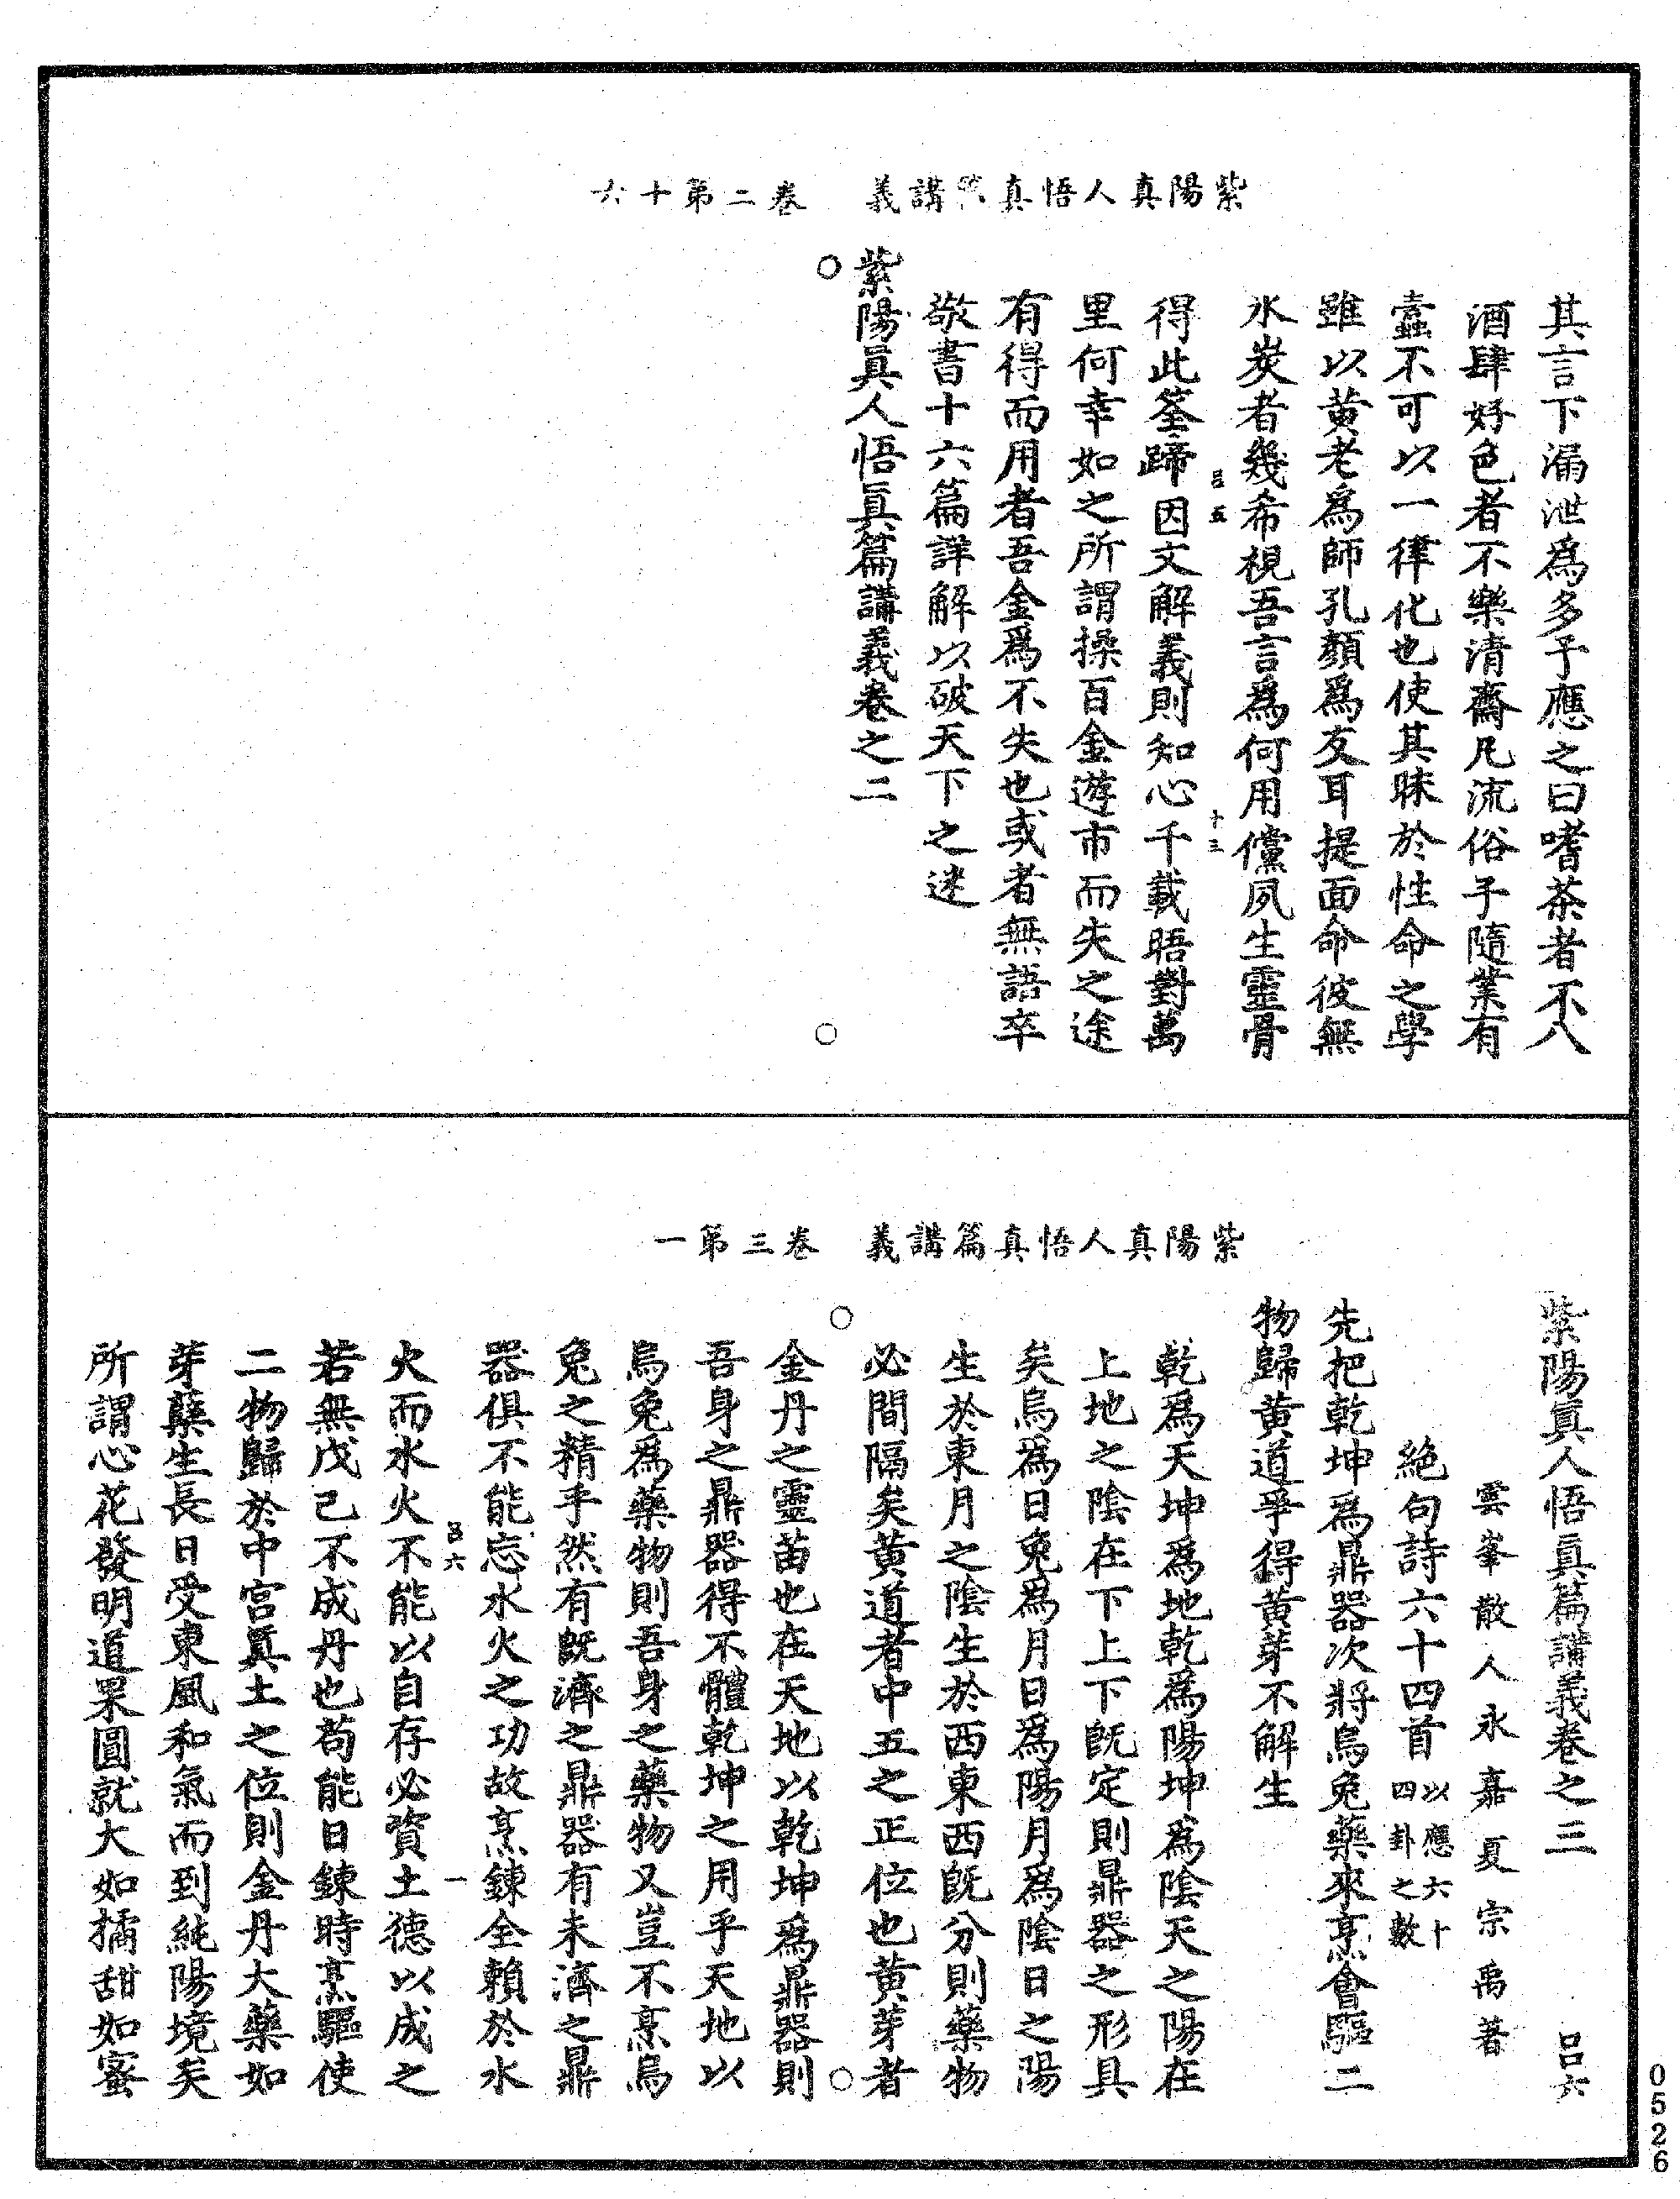 紫陽真人悟真篇講義　卷二第十六
其言下漏泄爲多予應之曰嗜茶者不入
酒肆好色者不樂清齋凡流俗子隨業有
蠧不可以一律化也使其昧於性命之學
雖以黄老爲師孔顏爲友耳提面命彼無
氷炭者幾希視吾言爲何用儻夙生靈骨
吕五　十三
得此筌蹄因文解義則知心千載晤對萬
里何幸如之所謂操百金遊市而失之途
有得而用者吾金爲不失也或者無語卒
敬書十六篇詳解以破天下之迷
紫陽眞人悟眞篇講義卷之二
紫陽真人悟真篇講義　卷三第一
紫陽眞人悟眞篇講義卷之三　吕六
雲峯散人永嘉夏宗禹著
絶句詩六十四首以應六十四卦之數
先把乾坤爲鼎器次將烏兔藥來烹會驅二
物歸黄道爭得黄芽不解生
乾爲天坤爲地乾爲陽坤爲陰天之陽在
上地之陰在下上下旣定則鼎器之形具
矣烏爲日兔爲月日爲陽月爲陰日之陽
生於東月之陰生於西東西旣分則藥物
必間隔矣黄道者中五之正位也黄芽者
金丹之靈苗也在天地以乾坤爲鼎器則
吾身之鼎器得不體乾坤之用乎天地以
烏兔爲藥物則吾身之藥物又豈不烹烏
兔之精乎然有旣濟之鼎器有未濟之鼎
器俱不能忘水火之功故烹鍊全賴於水
吕六　一
火而水火不能以自存必資土德以成之
若無戊己不成丹也苟能日鍊時烹驅使
二物歸於中宫眞土之位則金丹大藥如
芽蘖生長日受東風和氣而到純陽境矣
所謂心花發明道果圓就大如橘甜如蜜
0526